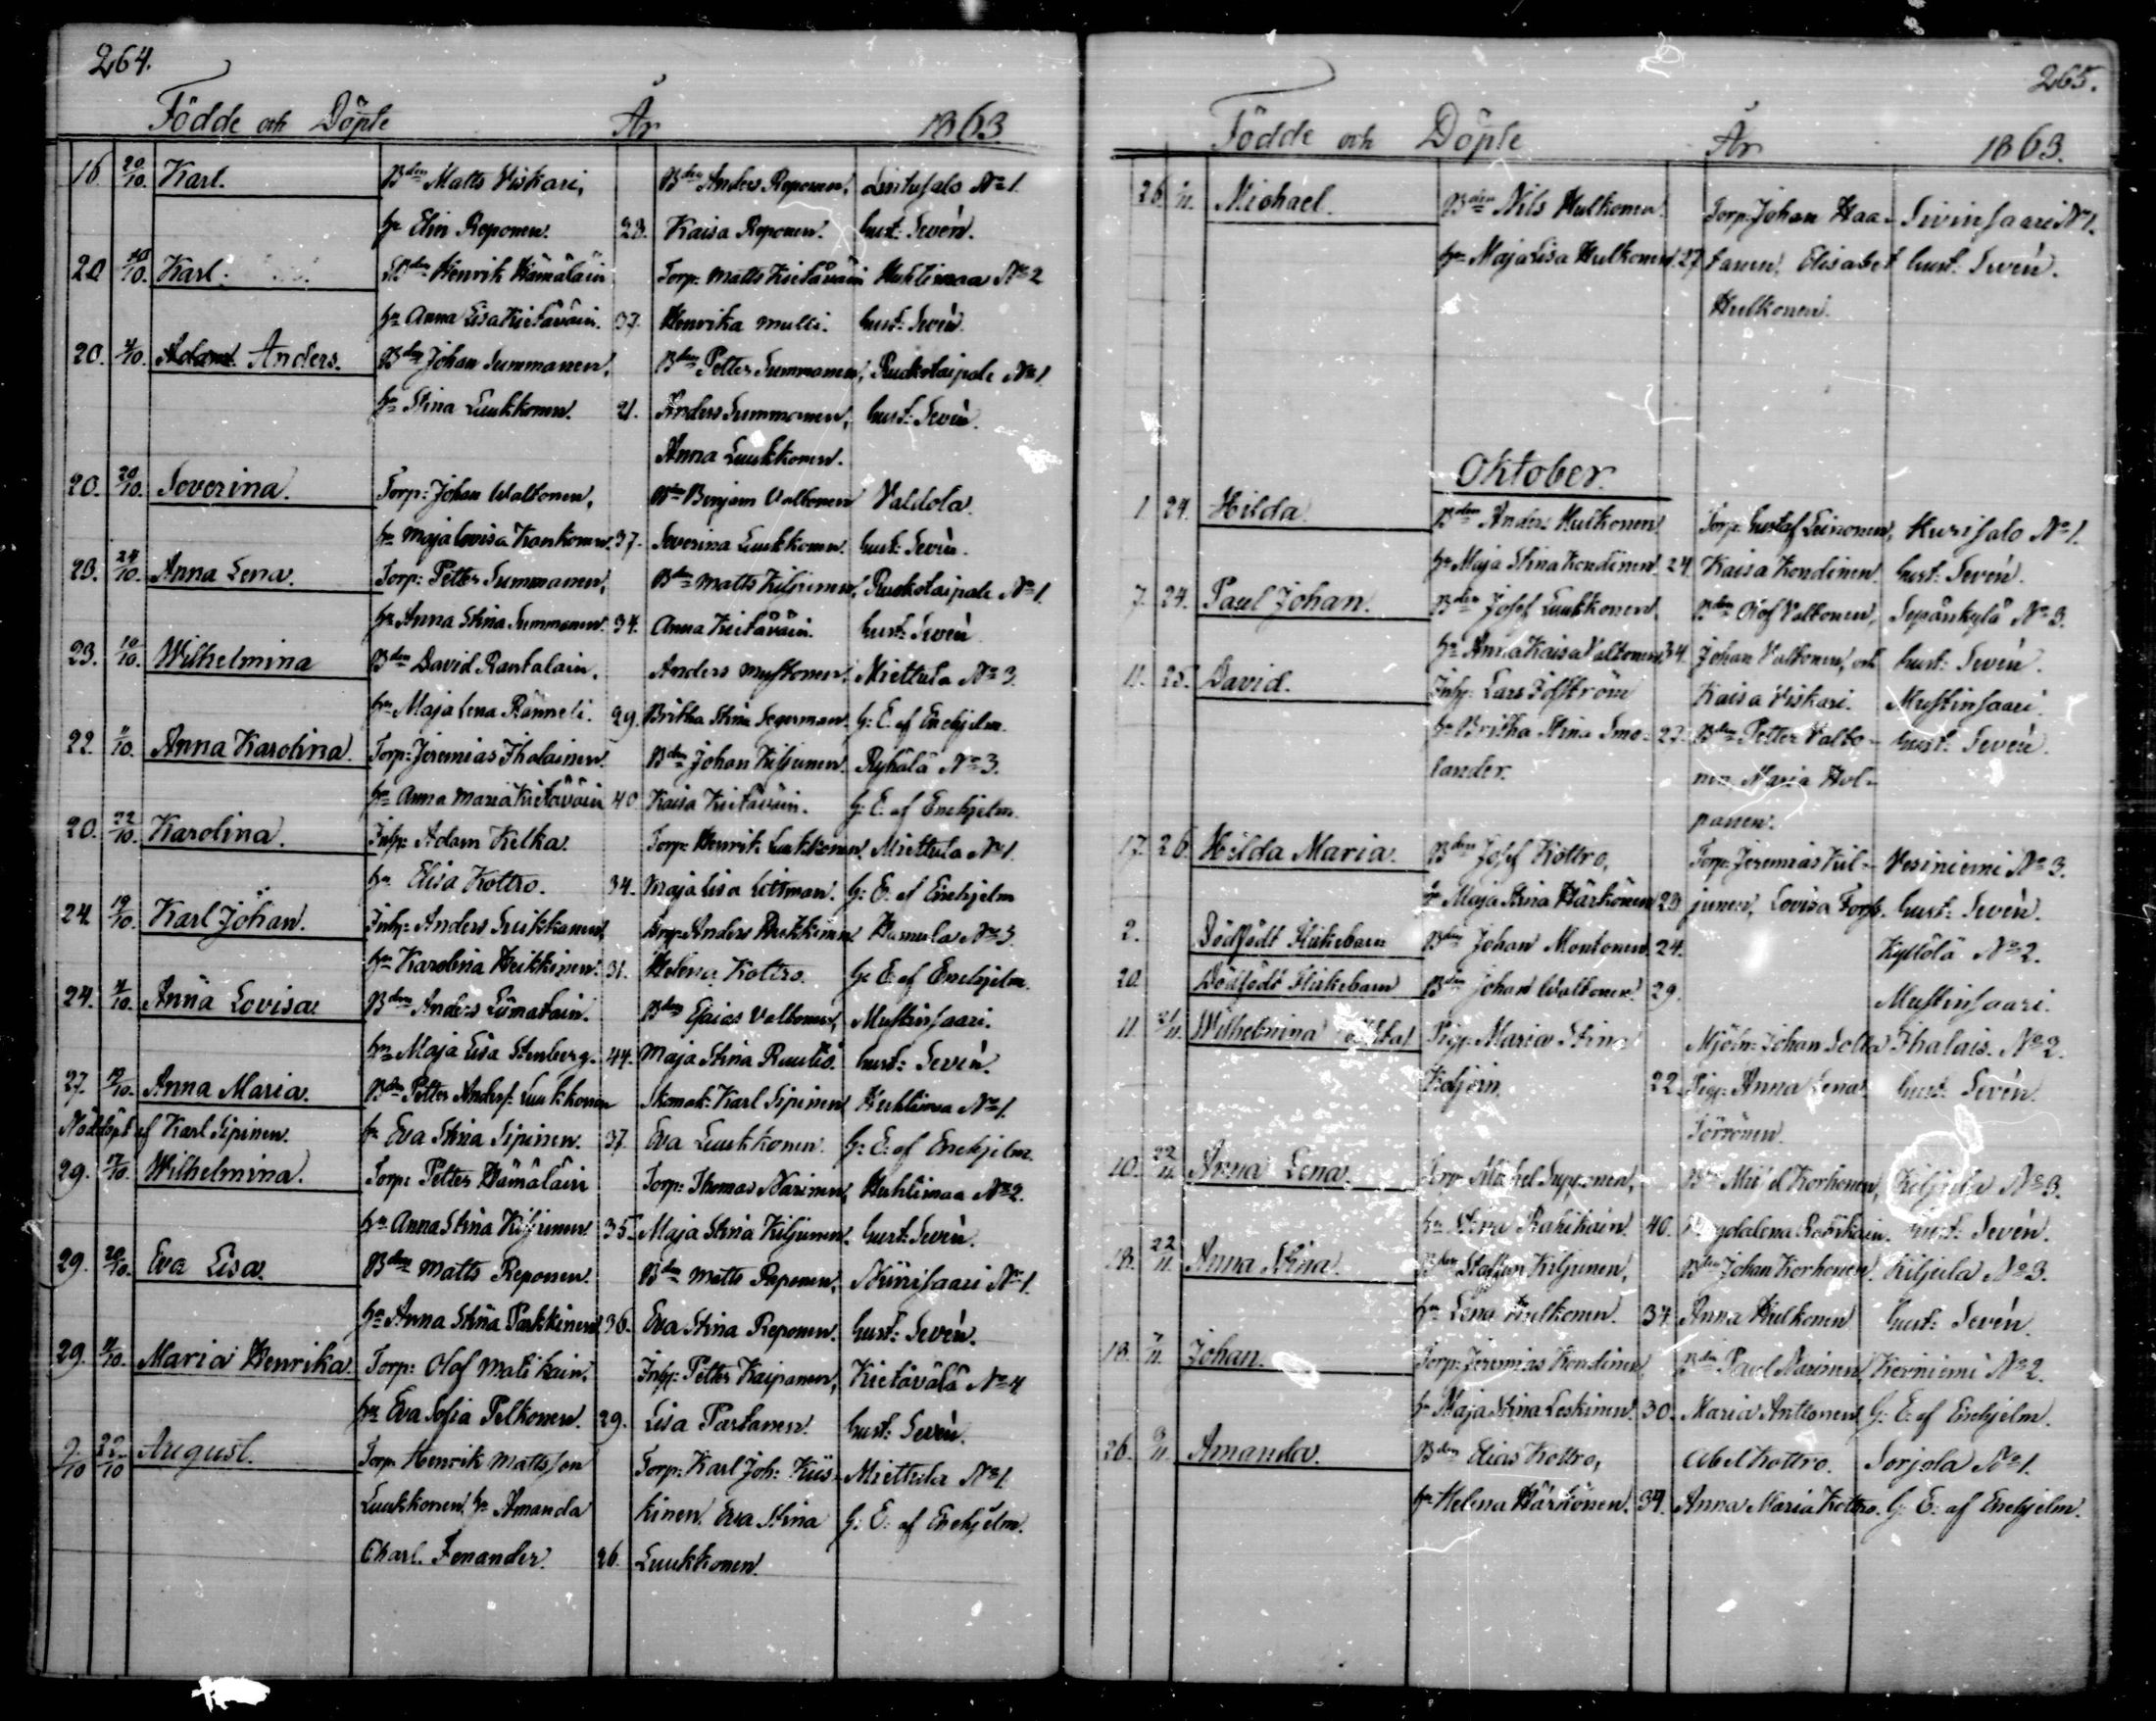 264.
Födde och Döpte År 1863
16. 20/10. Karl. Bdn Matts Viskari, Bdn Anders Reponen, Lintusalo No 1.
hu Elin Reponen. 23. Kaisa Reponen. Gust: Sevén.
20 /10. Karl. Bdn Henrik Hämäläin Torp: Matts Kietäväin Huhtimaa No 2
hu Anna Lisa Kietäväin. 37. Henrika Multi. Gust: Sevén.
20. 4/10. Anders. Bdn Johan Summanen, Bdn Petter Summanen, Ruokotaipale No 1.
hu Stina Luukkonen. 21. Anders Summanen, Gust: Sevén.
Anna Luukkonen.
20. 20/10. Severina. Torp: Johan Waltonen, Bdn Benjam Valtonen Valdola.
hu Maja Lovisa Kankonen. 37. Severina Luukkonen. Gust: Sevén.
23. 24/10. Anna Lena. Torp: Petter Summanen, Bdn Matts Kiljunen, Ruokotaipale No 1.
hu Anna Stina Summanen. 34. Anna Kietäväin. Gust: Sevén
23. 10/10. Wilhelmina Bdn David Rantalain. Anders Mustonen, Miettula No 3.
hu Maja Lena Rämreti. 29. Britha Stina Segerman. G: E. af Enehjelm.
22. /10. Anna Karolina. Torp: Jeremias Ihalainen. Bdn Johan Kiljunen. Ryhälä No 3.
hu Anna Maria Kietäväin 40 Kaisa Kietäväin. G: E. af Enehjelm.
20. 22/10. Karolina. Inh: Adam Kelka. Torp: Henrik Luukkonen. Miettula No 1.
hu Elisa Kottro. 34. Maja Lisa Litman. G: E. af Enehjelm
24. 19/10. Karl Johan. Inh: Anders Luukkanen, Anders Heikkinen Hamula No 3.
hu Karolina Heikkinen. 31. Helena Kottro. G: E. af Enehjelm.
24. 4/10. Anna Lovisa. Bdn Anders Liimatain. Bdn Esaias Valtonen, Mustinsaari.
hu Maja Lisa Stenberg. 44. Maja Stina Ruutiä. Gust: Sevén.
27. 19/10. Anna Maria. Bdn Petter Anderss. Luukkonen Skomak: Karl Sipinen Huhtimaa No 1.
Nöddöpt af Karl Sipinen. hu Eva Stina Sipinen. 37. Eva Luukkonen. G: E. af Enehjelm.
29. 17/10. Wilhelmina. Torp: Petter Hämäläin Torp: Thomas Narinen, Huhtimaa No 2.
hu Anna Stina Kiljunen 35. Maja Stina Kiljunen. Gust: Sevén.
29. 20/10. Eva Lisa. Bdn Matts Reponen. Bdn Matts Reponen, Niinisaari No 1.
hu Anna Stina Parkkinen 36. Eva Stina Reponen. Gust: Sevén.
29. /10. Maria Henrika. Torp: Olof Matikain, Inh: Petter Kaipanen, Kietävälä No 4
hu Eva Sofia Pelkonen. 29. Lisa Partanen. Gust: Sevén.
9/10 22/10 August. Torp: Henrik Mattsson Torp: Karl Joh: Kiis- Miettula No 1.
Luukkonen, hu Amanda kinen. Eva Stina G: E: af Enehjelm.
Charl. Fenander. 26. Luukkonen.
265.
Födde och Döpte År 1863.
26. /11. Michael. Bdn Nils Hulkonen. Torp: Johan Haa- Sivinsaari No 1.
hu Maja Lisa Hulkonen. 27. tanen, Elisabet Gust: Sevén.
Hulkonen.
Oktober.
1. 24. Hilda. Bdn Anders Hulkonen. Torp: Gustaf Leinonen, Hurisalo No 1.
hu Maja Stina Kondinen. 24. Kaisa Kondinen. Gust: Sevén.
7. 24. Paul Johan. Bdn Josef Luukkonen, Bdn Olof Valtonen, Sepänkylä No 3.
hu Anna Kaisa Valtonen 34. Johan Valtonen, och Gust: Sevén.
11. 25. David. Inh: Lars Idström Kaisa Viskari. Mustinsaari
hu Britha Stina Smo- 27. Bdn Petter Valto- Gust: Sevén.
lander. nen Maria Hol-
panen.
17. 26. Hilda Maria. Bdn Josef Kottro, Torp: Jeremias Kil- Vesiniemi No 3.
hu Maja Stina Härkönen 29 junen, Lovisa Forss. Gust: Sevén.
2. Dödfödt flickebarn Bdn Johan Montonen 24. Kyllölä No 2.
20 Dödfödt flickebarn Bdn Johan Waltonen. 29. Mustinsaari.
11. 21/11. Wilhelmina Pig: Maria Stina Mjöln: Johan Solla Ihalais. No 2.
22. Pig: Anna Lena Gust: Sevén.
Törrönen.
10. 22/11. Anna Lena. Torp: Michel Supponen, Bdn Michel Korhonen, Kiljula No 3.
hu Stina Rahikain. 40. Magdalena Rahikain. Gust: Sevén.
18. 22/11. Anna Stina. Bdn Staffan Kiljunen, Bdn Johan Korhonen. Kiljula No 3.
hu Lena Hulkonen. 34. Anna Hulkonen Gust: Sevén.
18. /11. Johan. Torp: Jeremias Kondinen, Bdn Paul Narinen Kerniemi No 2.
hu Maja Stina Leskinen. 30. Maria Anttonen G: E: af Enehjelm.
26. 9/11. Amanda. Bdn Elias Kottro, Abel Kottro. Sorjola No 1.
hu Helena Härkönen. 34. Anna Maria Kottro. G: E: af Enehjelm.